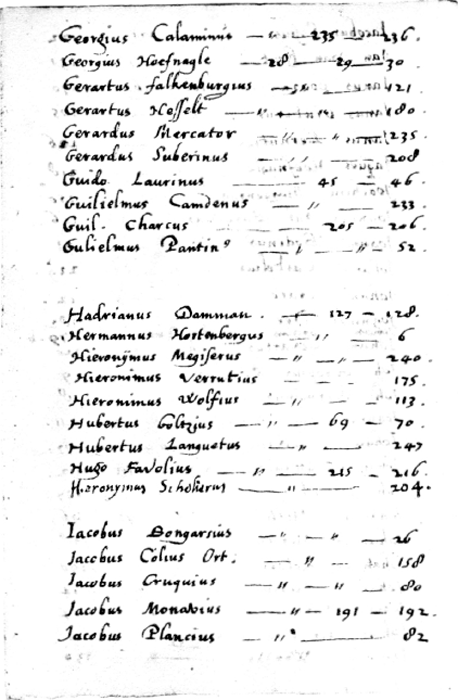 Georgius Calaminus — " — 235 — 236.
Georgius Hoefnagle — 28 — 29 — 30
Gerartus falkenburgius — " — 121
Gerartus Hesselt — " — " — 180.
Gerardus Mercator — " — " — 235.
Gerardus Suberinus — " — 208
Guido Laurinus — 45 — 46.
Guilielmus Camdenus — " — 233.
Guil. Charcus — 205 — 206.
Gulielmus Pantin9 — " — " — 52.
Hadrianus Damman. — 127 — 128.
Hermannus Hortenbergus — " — 6
Hieronymus Megiserus — " — " — 240.
Hieronimus Verrutius — — — 175.
Hieronimus Wolfius — " — — 113.
Hubertus Goltzius — " — 69 — 70.
Hubertus Languetus — " — 247
Hugo Favolius — " — 215 — 216.
Hieronymus Scholierus — " — 204.
Iacobus Bongarsius — " — — 26
Jacobus Colius Ort. — " — 158
Jacobus Cruquius — " — " — 80
Jacobus Monavius — " — 191 — 192.
Jacobus Plancius — " — 82